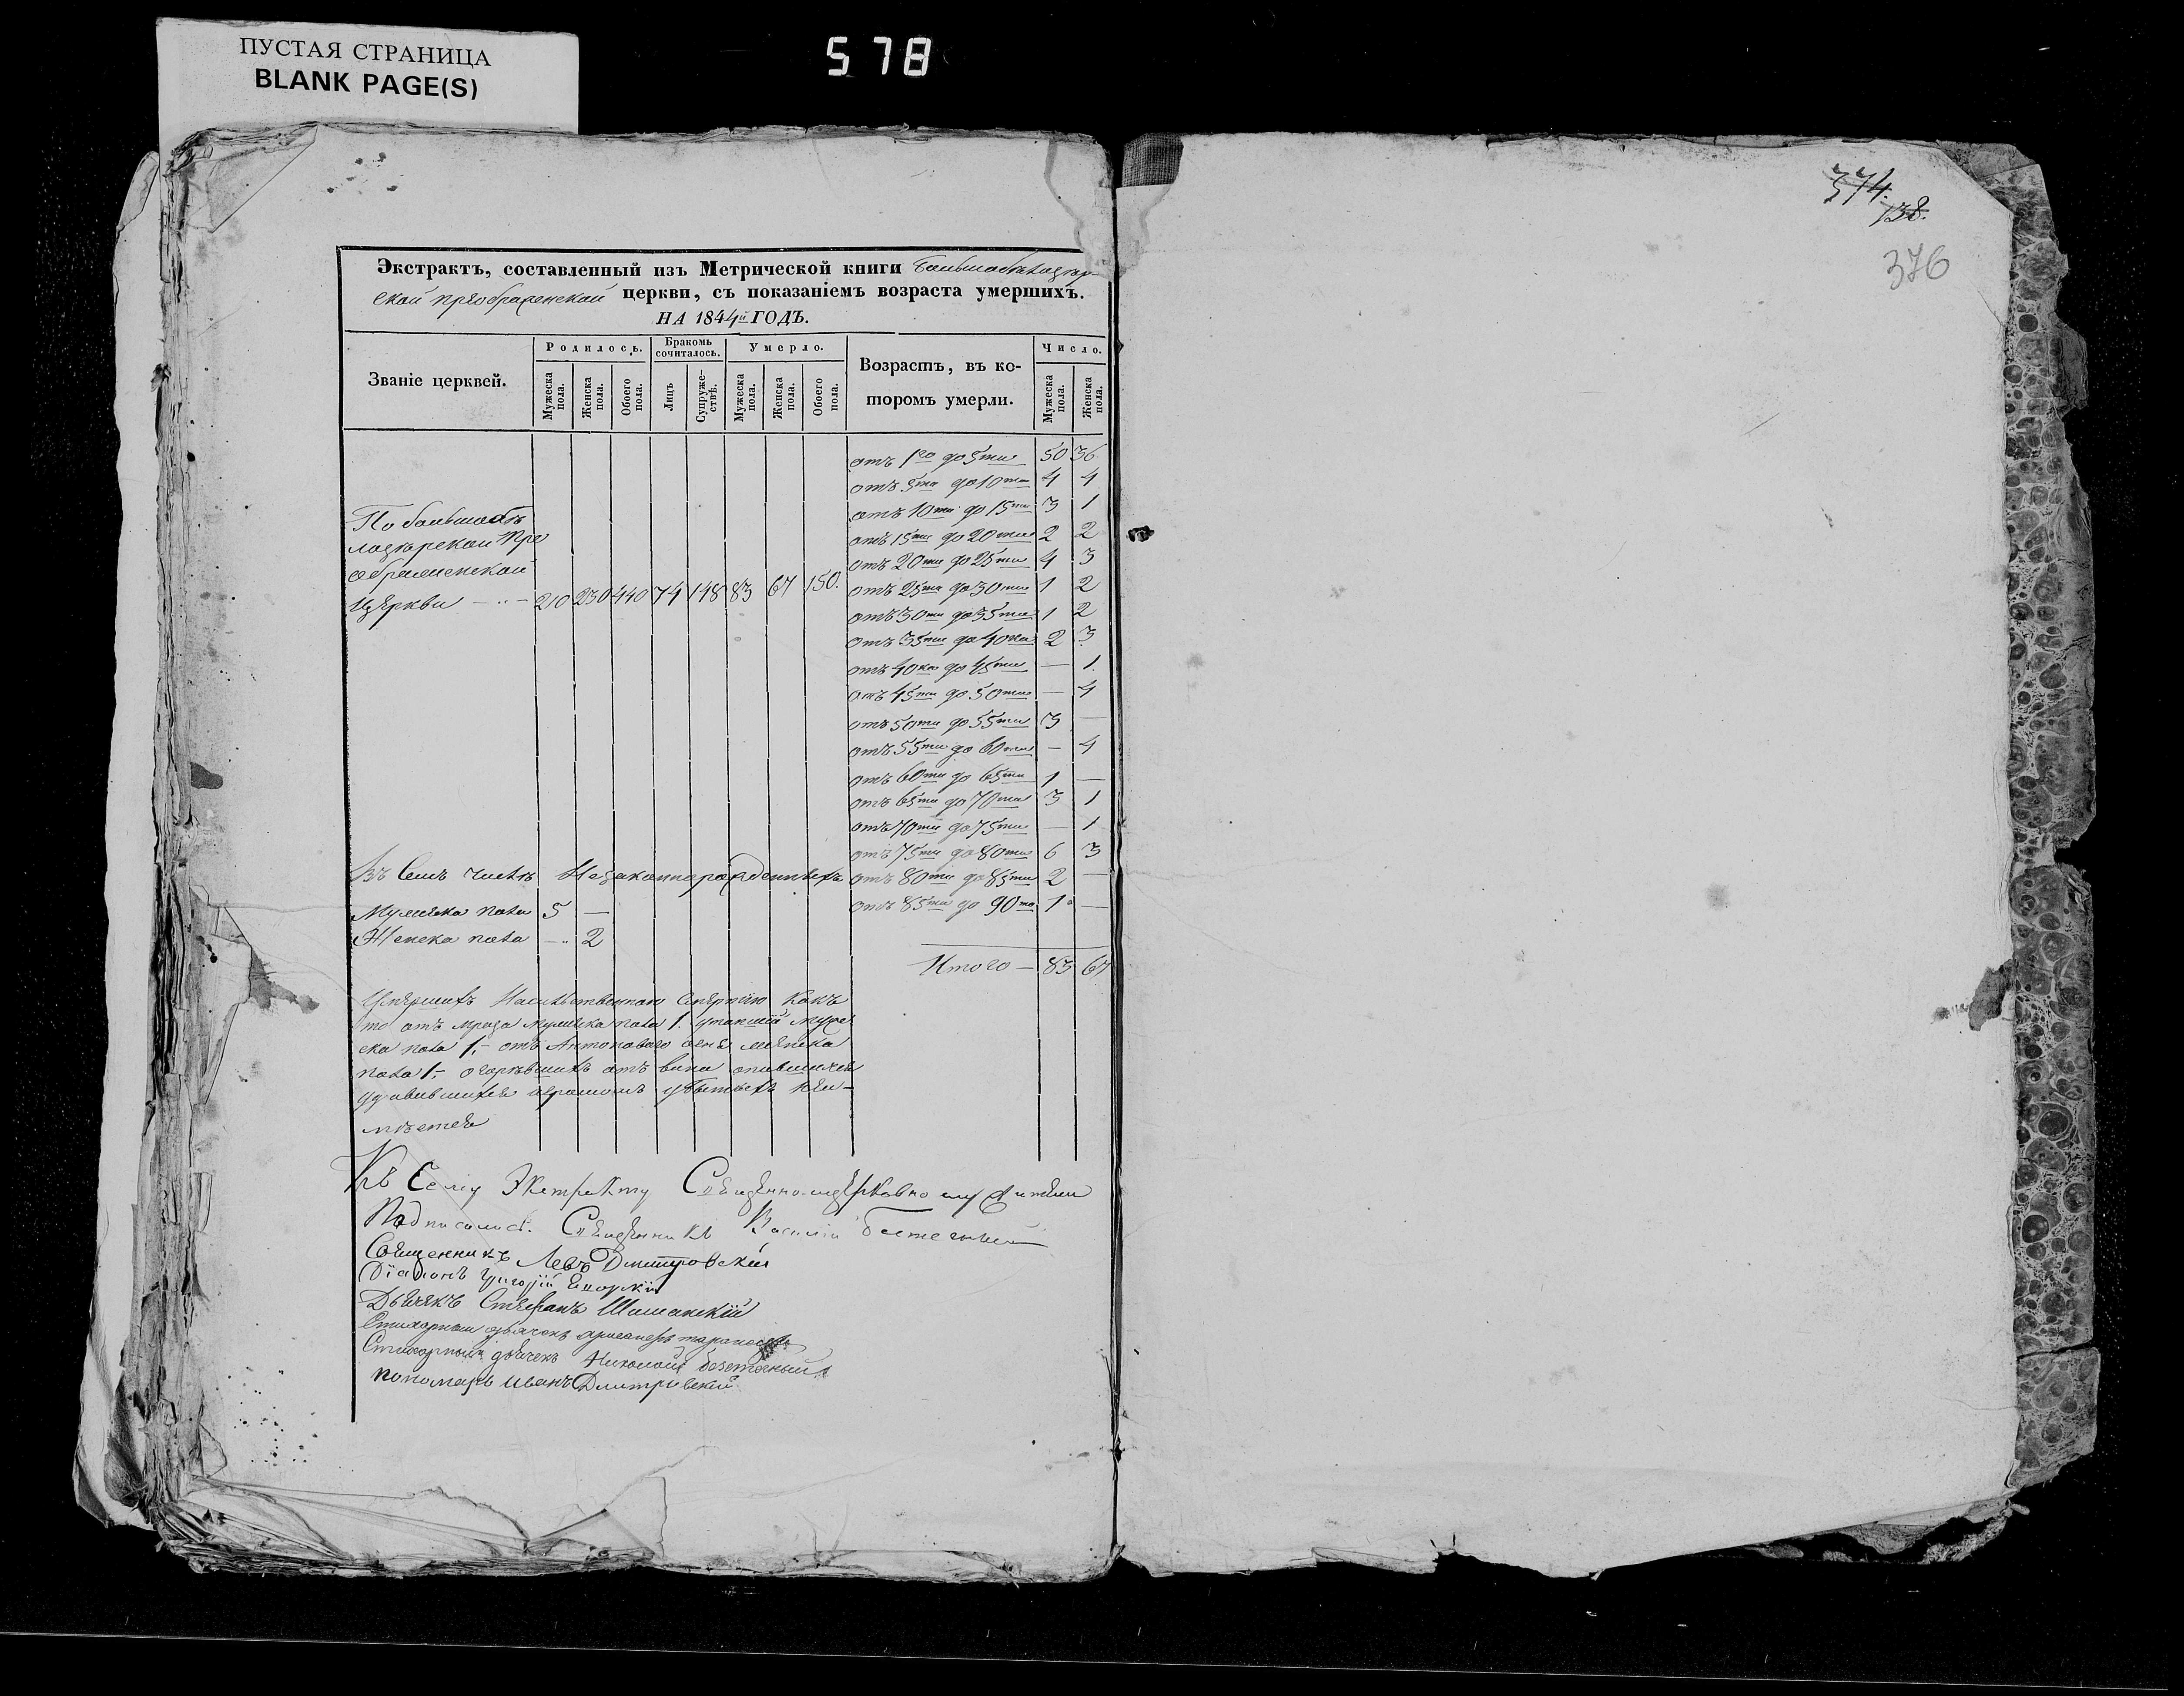 ПУСТАЯ СТРАНИЦА
BLANK PAGE(S)
578
374.
138.
376
Экстрактъ, составленный изъ Метрической книги
ской преображенской церкви, съ показаніемъ возраста умершихъ.
НА 1844й ГОДЪ.
Званіе церквей.
Родилось.
Бракомъ сочиталось.
Умерло.
Возрастъ, въ котором умерли.
Число.
Мужеска пола.
Женска пола.
Обоего пола.
Лицъ
Супружествъ.
Мужеска пола.
Женска пола.
Обоего пола.
Мужеска пола.
Женска пола.
отъ 1го до 5ти 50 36
отъ 5ти до 10ти 4 4
отъ 10ти до 15ти 3 1
отъ 15ти до 20ти 2 2
отъ 20ти до 25ти 4 3
отъ 25ти до 30ти 1 2
отъ 30ти до 35ти 1 2
отъ 35ти до 40ка 2 3
отъ 40ка до 45ти — 1
отъ 45ти до 50ти — 4
отъ 50ти до 55ти 3 —
отъ 55ти до 60ти — 4
отъ 60ти до 65ти 1 —
отъ 65ти до 70ти 3 1
отъ 70ти до 75ти — 1
отъ 75ти до 80ти 6 3
отъ 80ти до 85ти 2 —
отъ 85ти до 90та 1 —
Итого — 83 67
По
Пре
ображенской
Церкви 210 230 440 74 148 83 67 150.
Въ Семъ числѣ Незаконнорожденныхъ
Мужеска пола 5 —
Женска пола — 2
Умершихъ Насильственною Смертію Какъ
то отъ мужеска пола 1. утопшій муже
ска пола 1, — отъ Антонова огня
пола 1, — отъ вина опившихся
удавившихся громомъ убитыхъ неи-
мѣется
Къ Сему Экстракту Священно-церковно служители
Подписались. Священникъ Василій
Священникъ Левъ Дмитровскій
Діаконъ Григорій
Дьячекъ Стефанъ Шиманскій
Стихарный дьячекъ
Стихарный дьячекъ Николай
пономарь Иванъ Дмитровскій